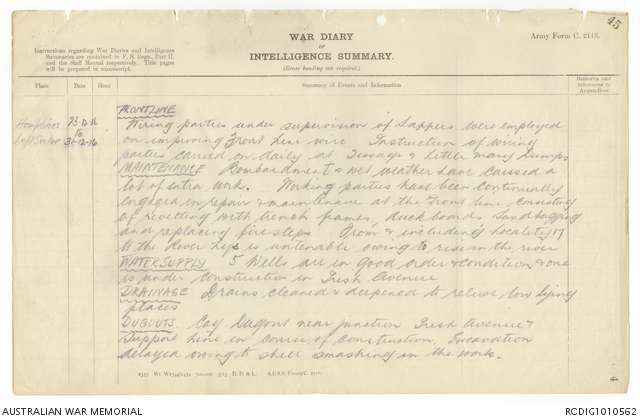 45
WAR DIARY
or
INTELLIGENCE SUMMARY.
(Erase heading not required.)
Army Form C. 2118.
Instructions regarding War Diaries and Intelligence
Summaries are contained in F. S. Regs., Part II.
and the Staff Manual respectively. Title pages
will be prepared in manuscript.
Place
Date
Hour
Summary of Events and Information
Remarks and
references to
Appendices
Houplines
Left Sector
to
31-12-16
FRONTLINE
Wiring parties under supervision of Sappers were employed
on improving Front Line wire Instruction of wiring
parties carried on daily at & Dumps
MAINTENANCE Bombardment & wet weather have caused a
lot of extra work. Working parties have been continually
engaged in repair & maintenance at the Front line, consisting
of revetting with trench frames, duckboards sandbagging
and replacing firesteps From & including Locality 17
to the River Lys is untenable owing to rise in the river
WATERSUPPLY 5 Wells are in good order & condition & one
is under construction in Irish Avenue
DRAINAGE Drains cleaned & deepened to relieve low lying
places
DUGOUTS Coy Dugout near junction Irish Avenue &
Support Line in course of construction. Excavation
delayed owing to shell smashing in the work.
AUSTRALIAN WAR MEMORIAL
RCDIG1010562